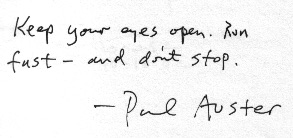 Keep your eyes open. Run
fast – and don't stop.
– Paul Auster